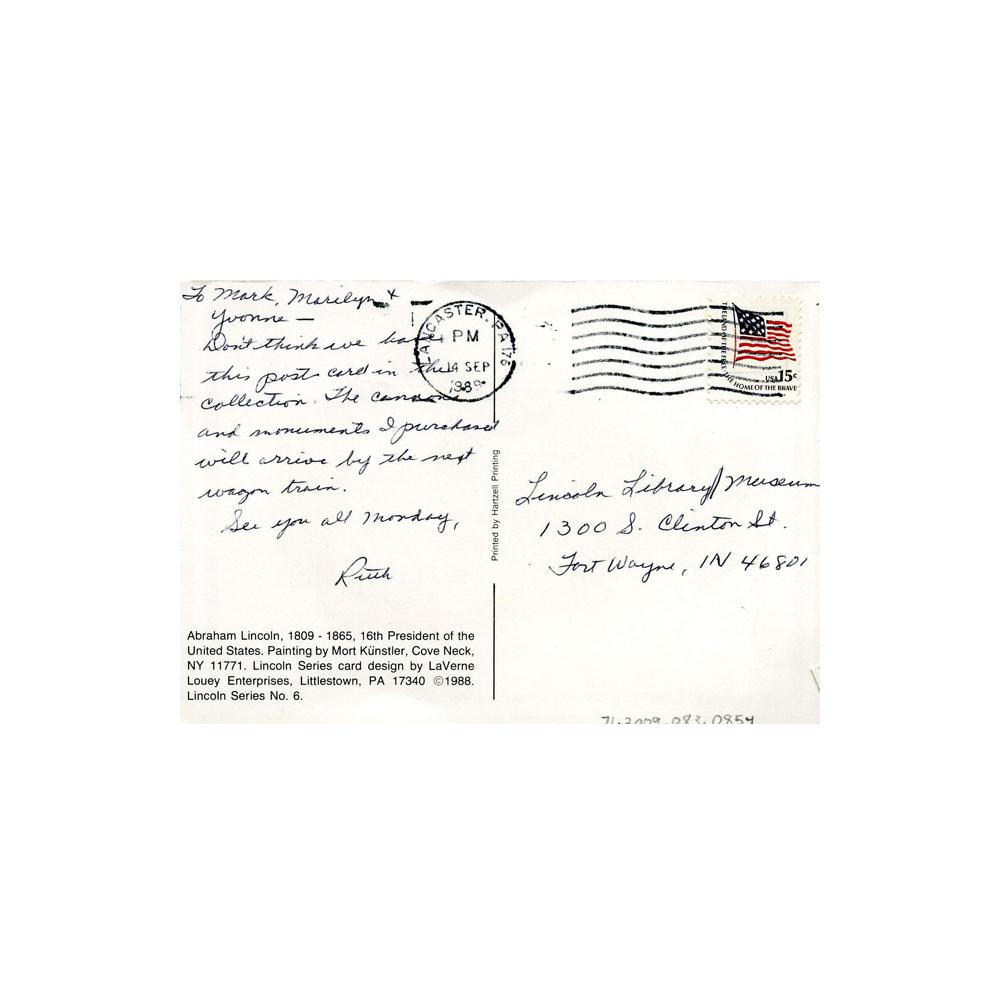 To Mark, Marilyn +
Yvonne —
Don't think we have
this post card in the
collection. The cannons
and monuments I purchased
will arrive by the next
wagon train.
See you all Monday,
Ruth
Abraham Lincoln, 1809 - 1865, 16th President of the
United States. Painting by Mort Künstler, Cove Neck,
NY 11771. Lincoln Series card design by LaVerne
Louey Enterprises, Littlestown, PA 17340 ©1988.
Lincoln Series No. 6.
LANCASTER, PA 176
PM
14 SEP
1989
Printed by Hartzell Printing
THE LAND OF THE FREE THE HOME OF THE BRAVE
USA 15c
Lincoln Library/Museum
1300 S. Clinton St.
Fort Wayne, IN 46801
71.2009.083.0854